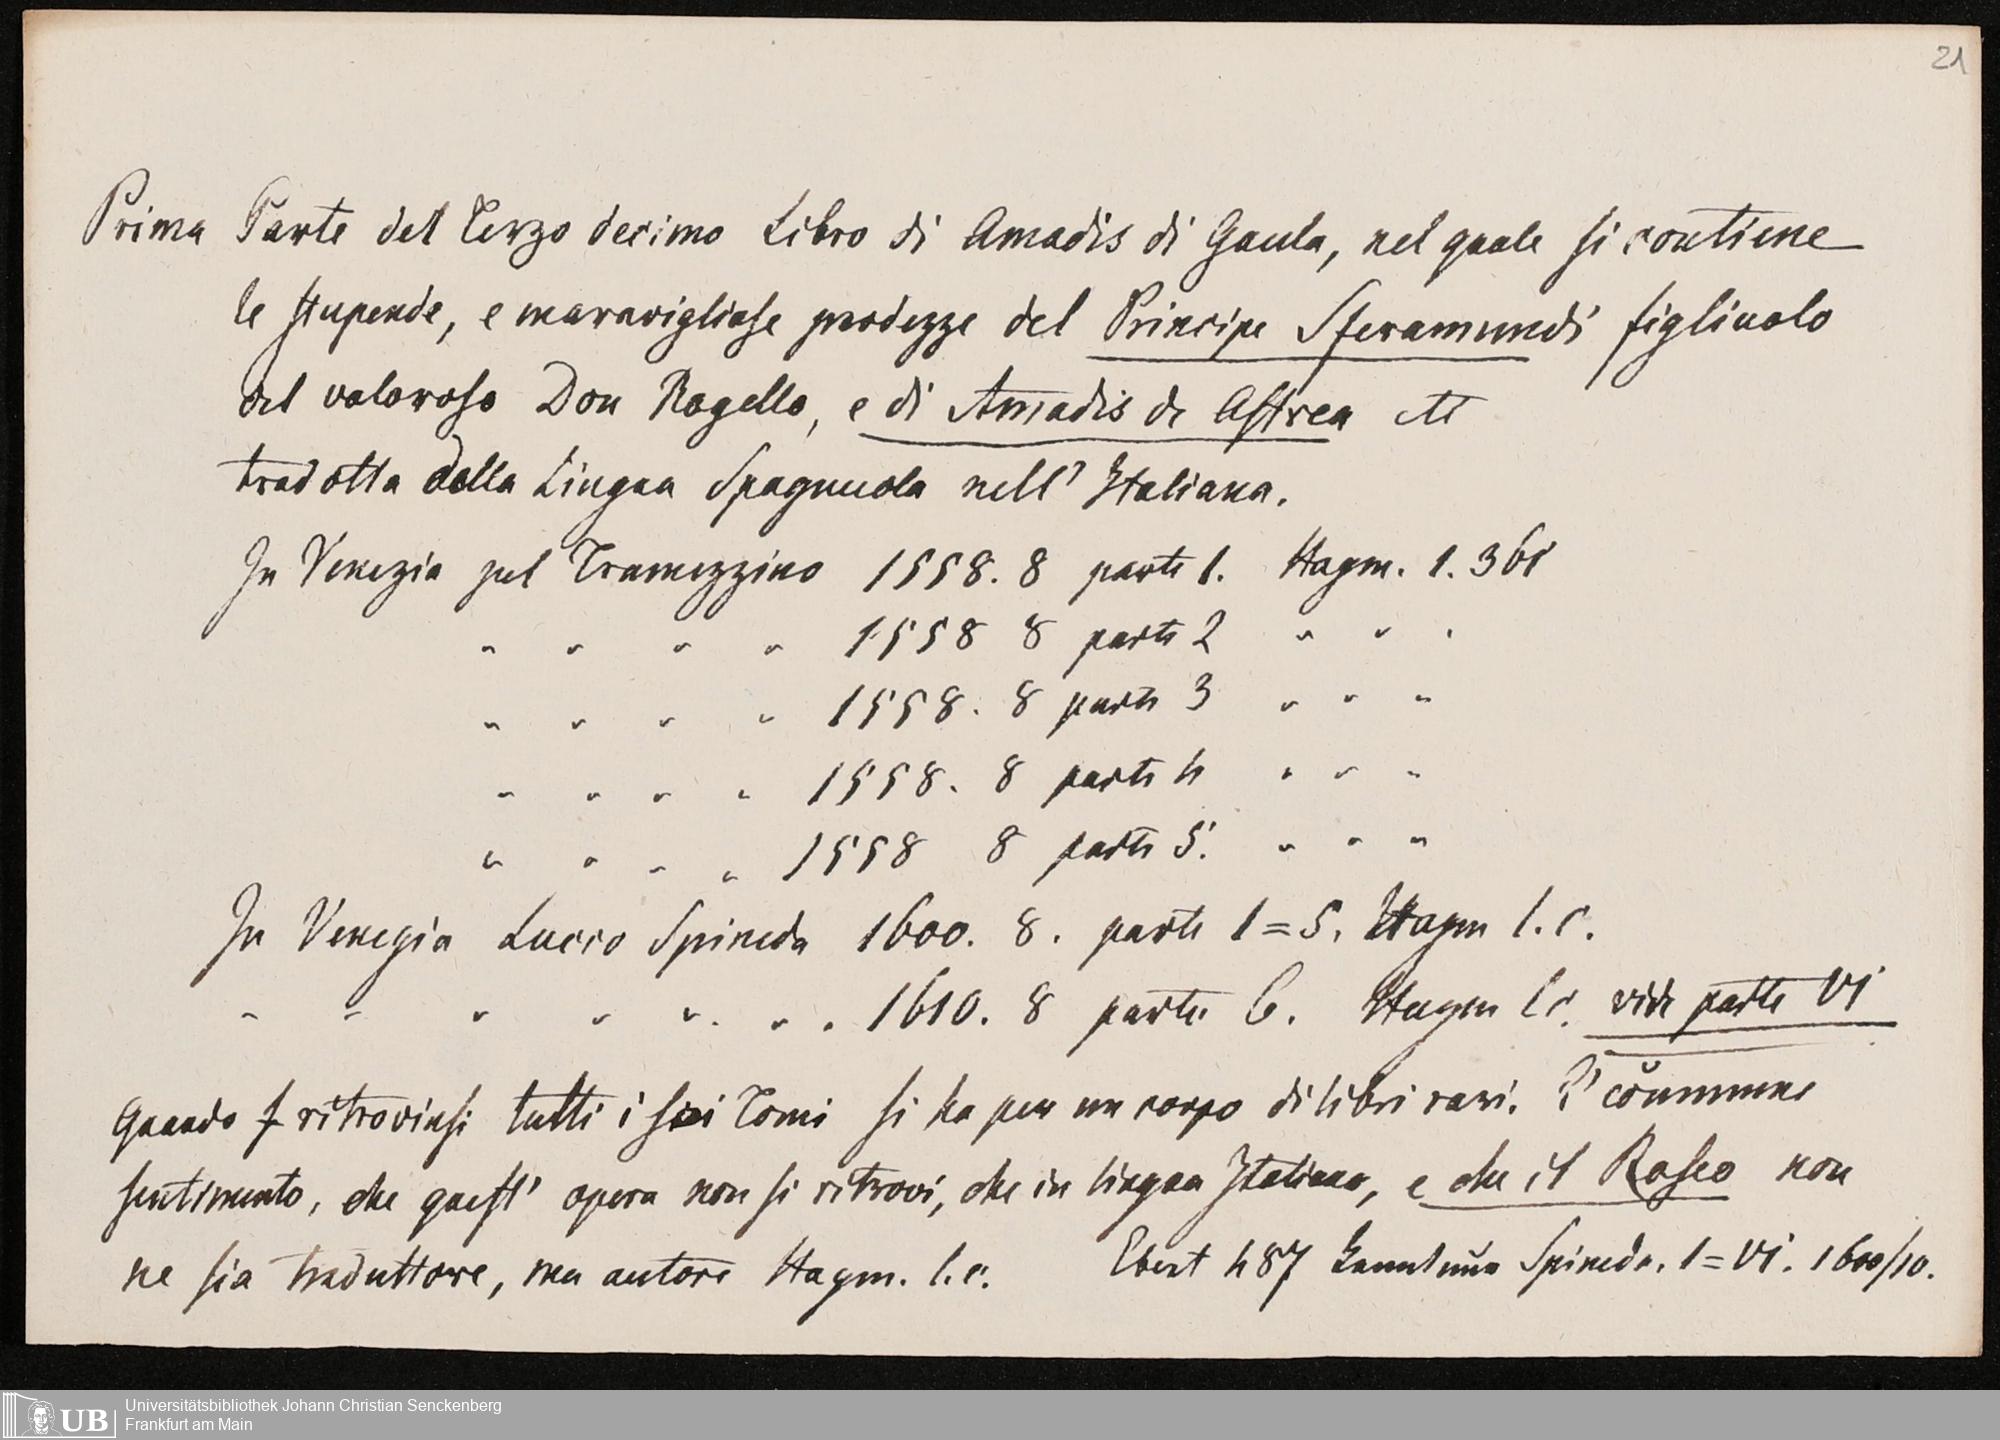 21
Prima Parte del Terzo decimo Libro di Amadis di Gaula, nel quale si contiene
le stupende, e maravigliose prodezze del Principe Sferamundi figliuolo
del valoroso Don Rogello, e di Amadis di Astrea etc
tradotta dalla Lingua Spagnuola nell' Italiana.
In Venezia pel Tramezzino 1558. 8 parte 1. Hagm. 1. 361
" " " " 1558 8 parte 2 " " "
" " " " 1558. 8 parte 3 " " "
" " " " 1558. 8 parte 4 " " "
" " " " 1558 8 parte 5. " " "
In Venezia Lucio Spineda 1600. 8. parte 1=5. Hagm l. c.
" " " " " " 1610. 8 parte 6. Hagm l c. vide parte VI
Quando ritrovinsi tutti i sei Tomi si ha per un corpo di libri rari. È commune
sentimento, che quest' opera non si ritrovi, che in lingua Italiana, e che il Roseo non
ne sia traduttore, ma autore Hagm. l. c. Ebert 487 Spineda. 1=VI. 1600/10.
UB
Universitätsbibliothek Johann Christian Senckenberg
Frankfurt am Main